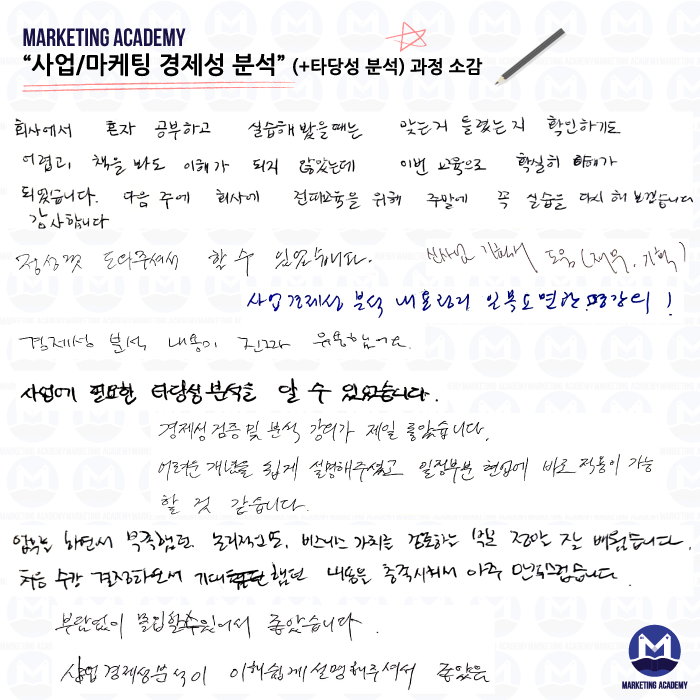 MARKETING ACADEMY
“사업/마케팅 경제성 분석” (+타당성 분석) 과정 소감
회사에서 혼자 공부하고 실습해 봤을때는 맞는지 틀렸는지 확인하기도
어렵고, 책을 봐도 이해가 되지 않았는데 이번 교육으로 확실히 이해가
되었습니다. 다음 주에 회사에 전파교육을 위해 주말에 꼭 실습을 다시 해 보겠습니다
감사합니다
정성껏 도와주셔서 할 수 있었습니다.
신사업 기획에 도움 (재무, 기획)
사업경제성 분석 내용정리 일목요연한 명강의!
경제성 분석 내용이 진짜 유용했어요.
사업에 필요한 타당성 분석을 알 수 있었습니다.
경제성 검증 및 분석 강의가 제일 좋았습니다.
어려운 개념을 쉽게 설명해주셨고 일정부분 현업에 바로 적용이 가능
할 것 같습니다.
업무를 하면서 부족했던 논리적사고, 비즈니스 가치를 검토하는 정말 잘 배웠습니다.
처음 수강 결정하면서 기대했던 내용을 충족시켜서 아주 만족스럽습니다.
부담없이 몰입할수있어서 좋았습니다.
사업경제성분석이 이해쉽게 설명해주셔서 좋았음
MARKETING ACADEMY